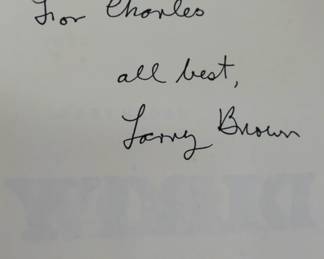 For Charles
all best,
Larry Brown